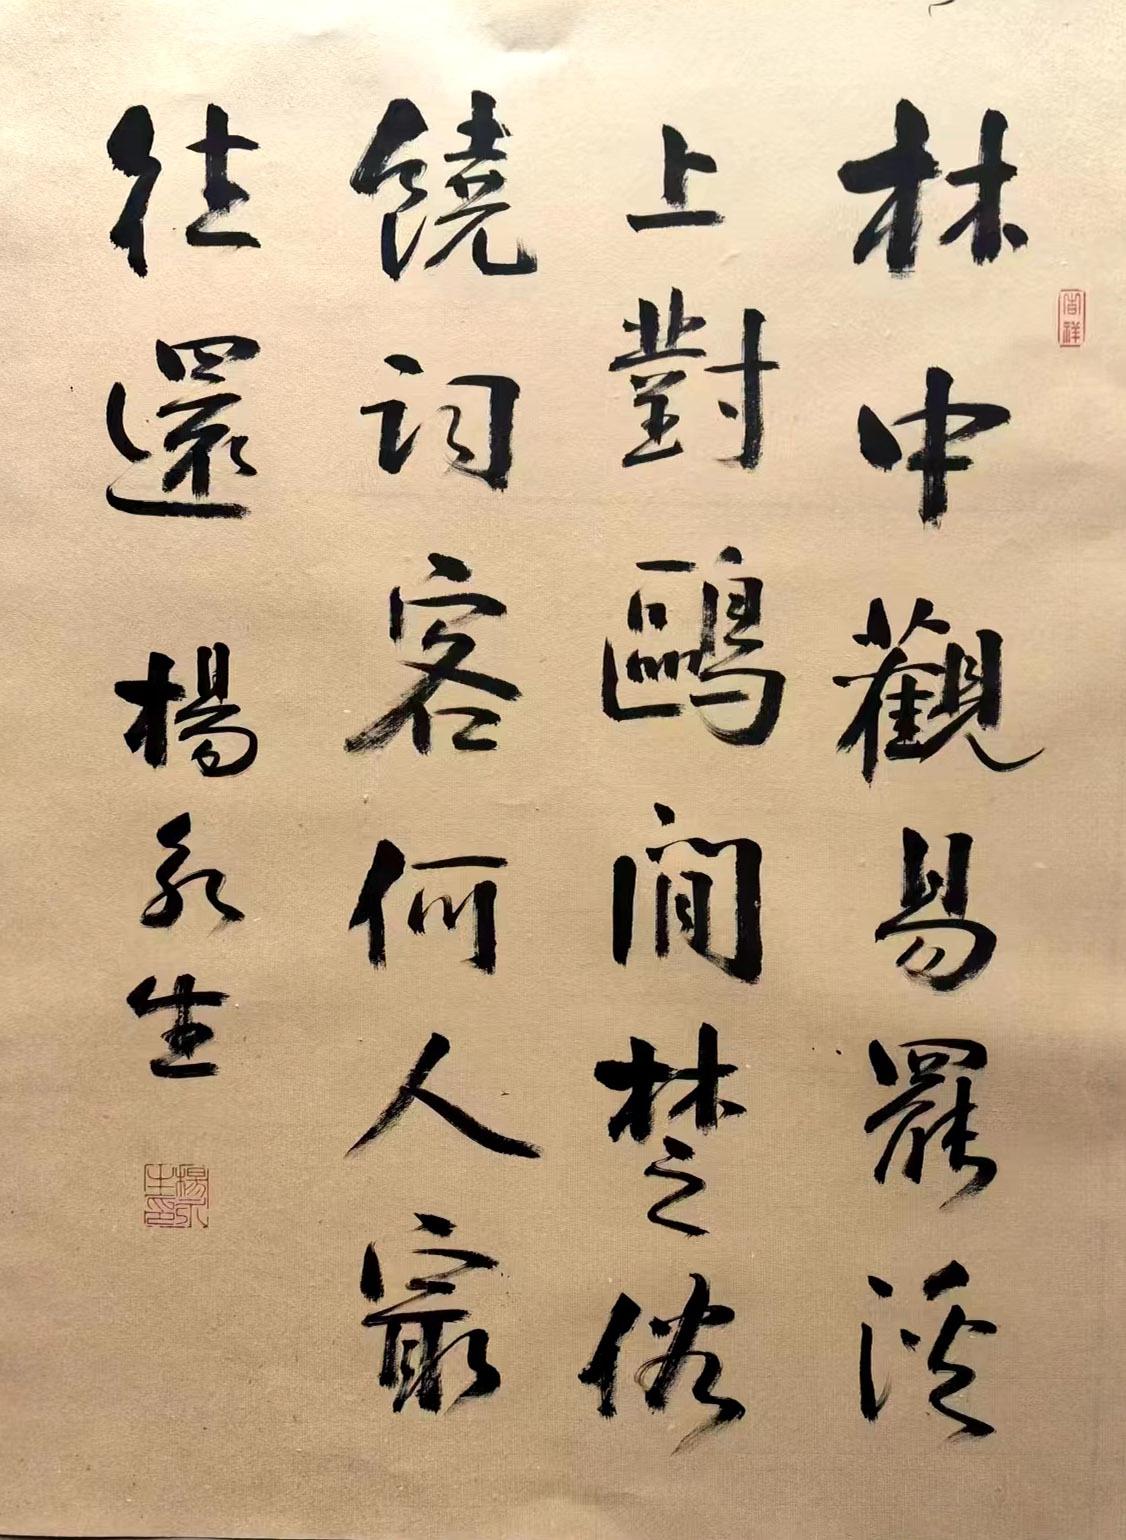 林中觀易罷溪
上對鷗閒楚俗
饒詞客何人最
往還 楊永生
楊永生印